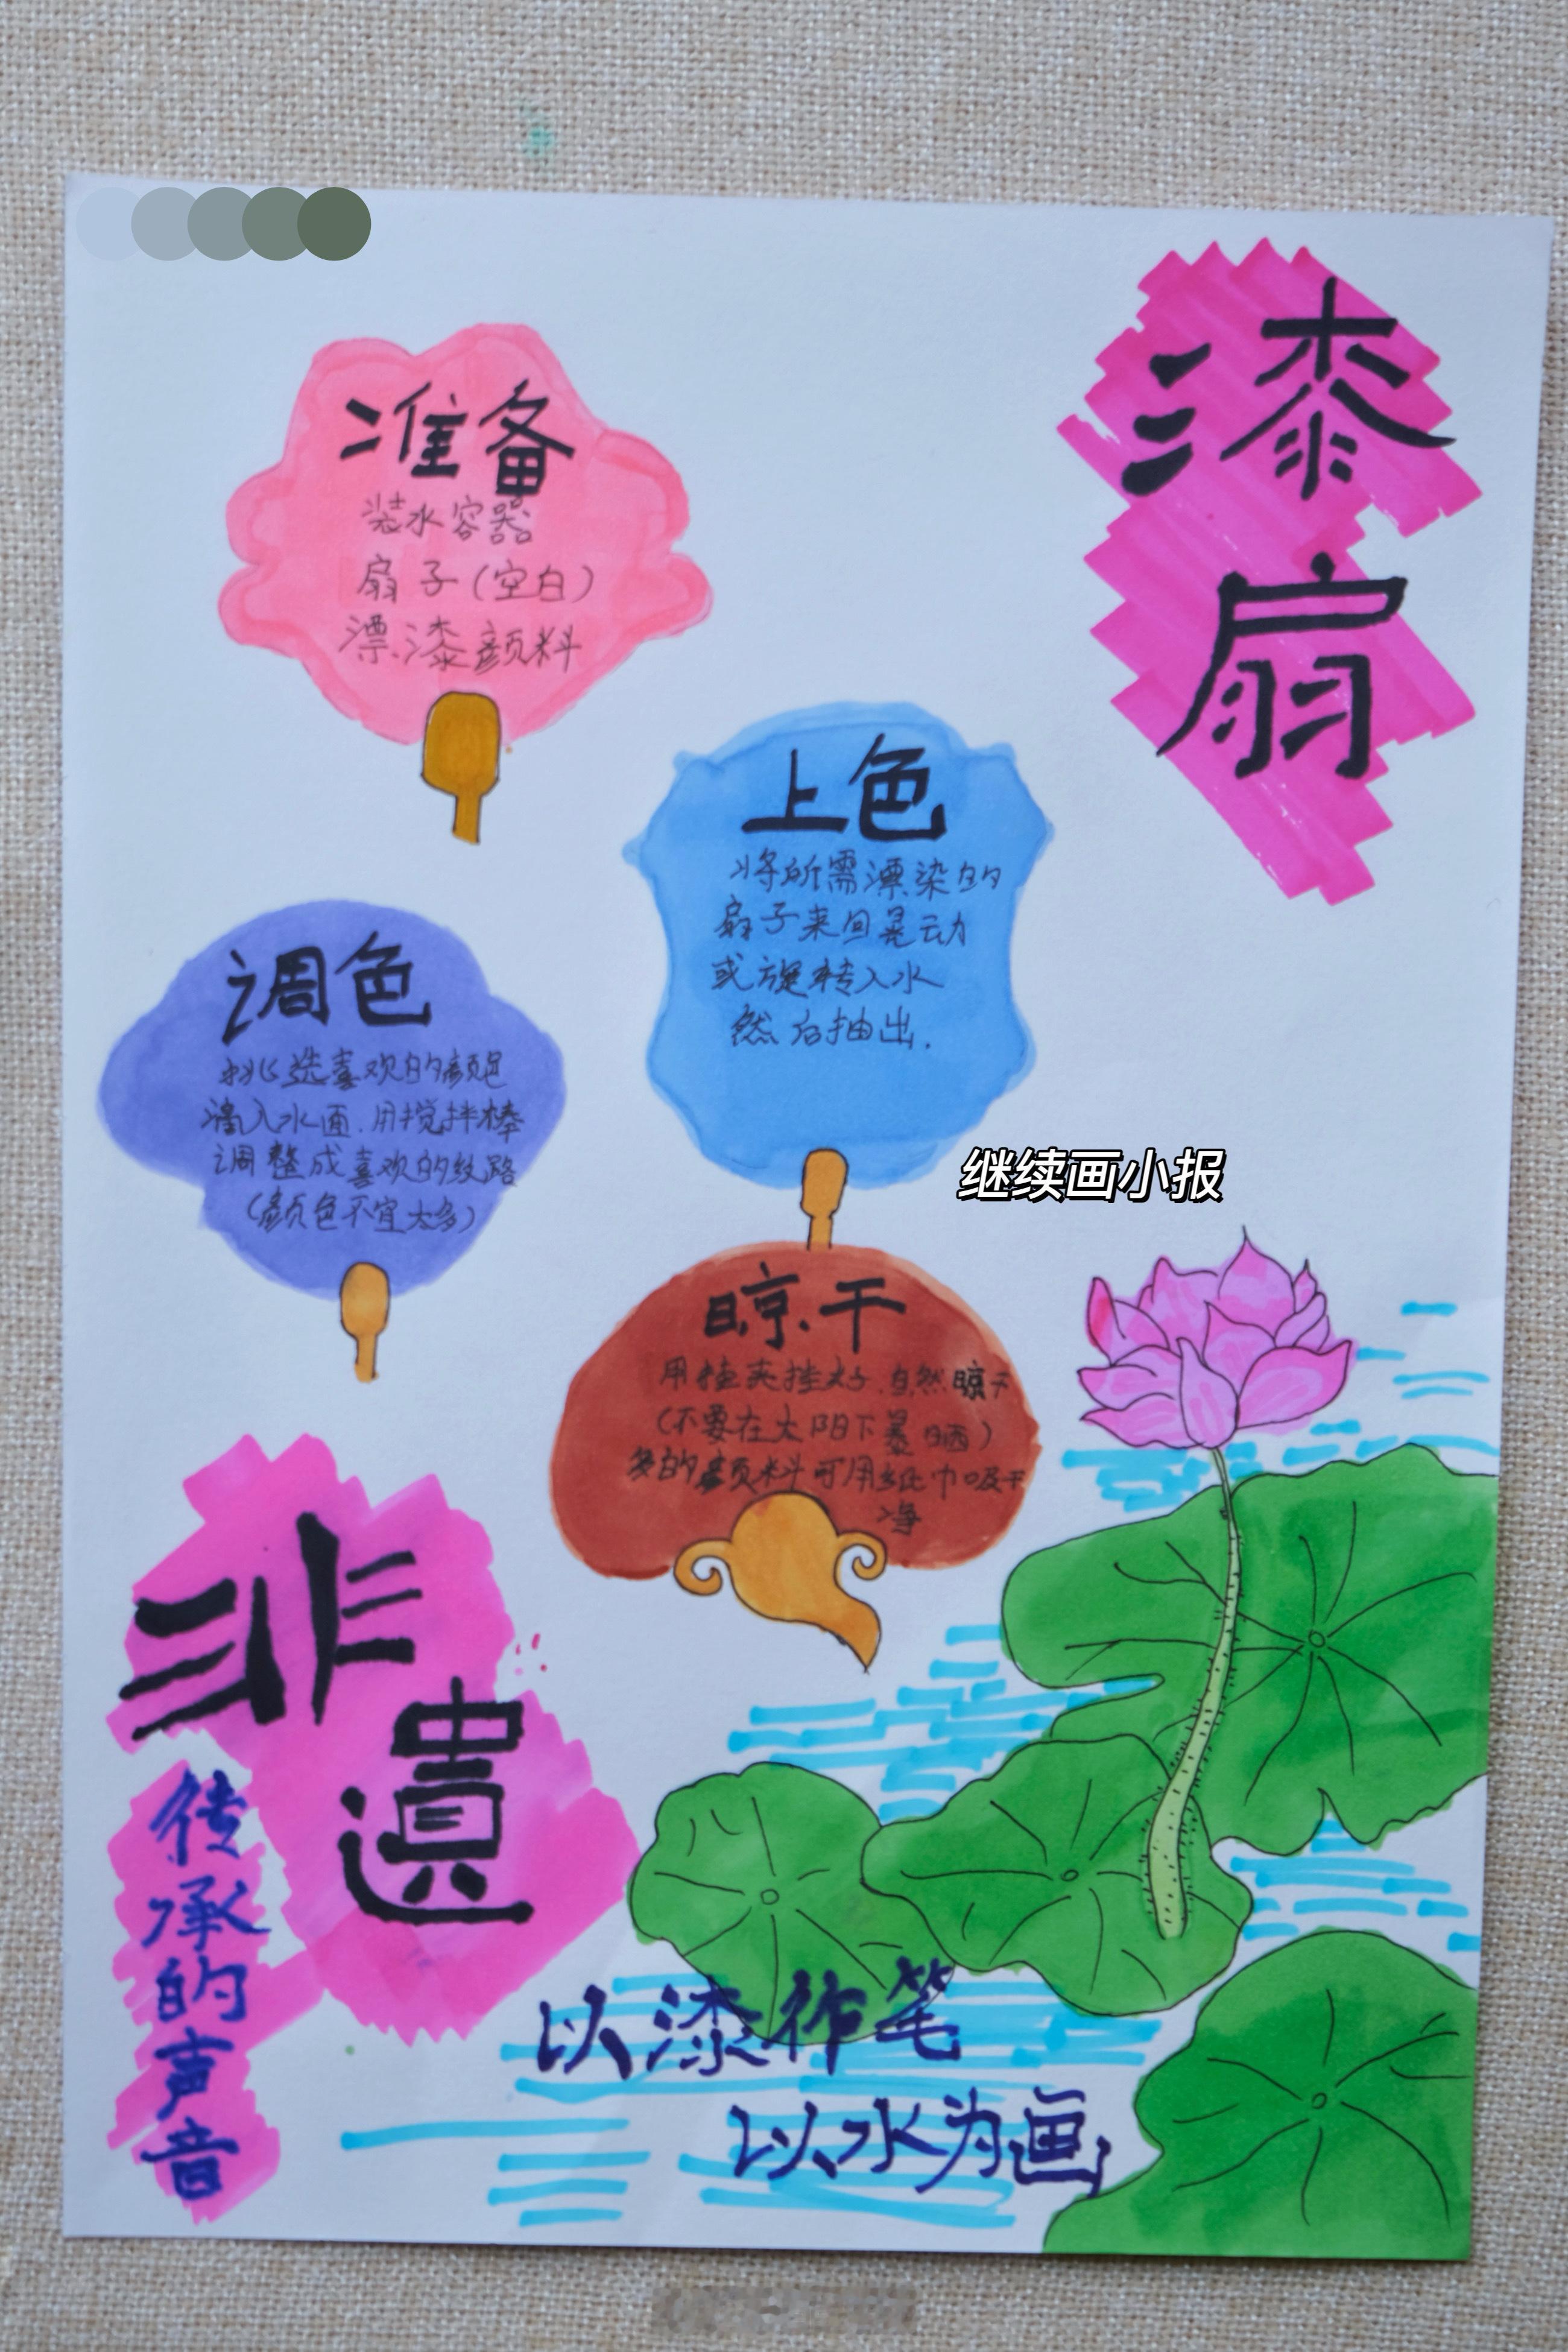 漆
扇
准备
装水容器
扇子(空白)
漂漆颜料
上色
将所需漂染的
扇子来回晃动
或旋转入水
然后抽出.
调色
挑选喜欢的颜色
滴入水面.用搅拌棒
调整成喜欢的纹路
(颜色不宜太多)
继续画小报
晾干
用挂夹挂好.自然晾干
(不要在太阳下暴晒)
多的颜料可用纸巾吸干
净
非
遗
传承的声音
以漆作笔
以水为画